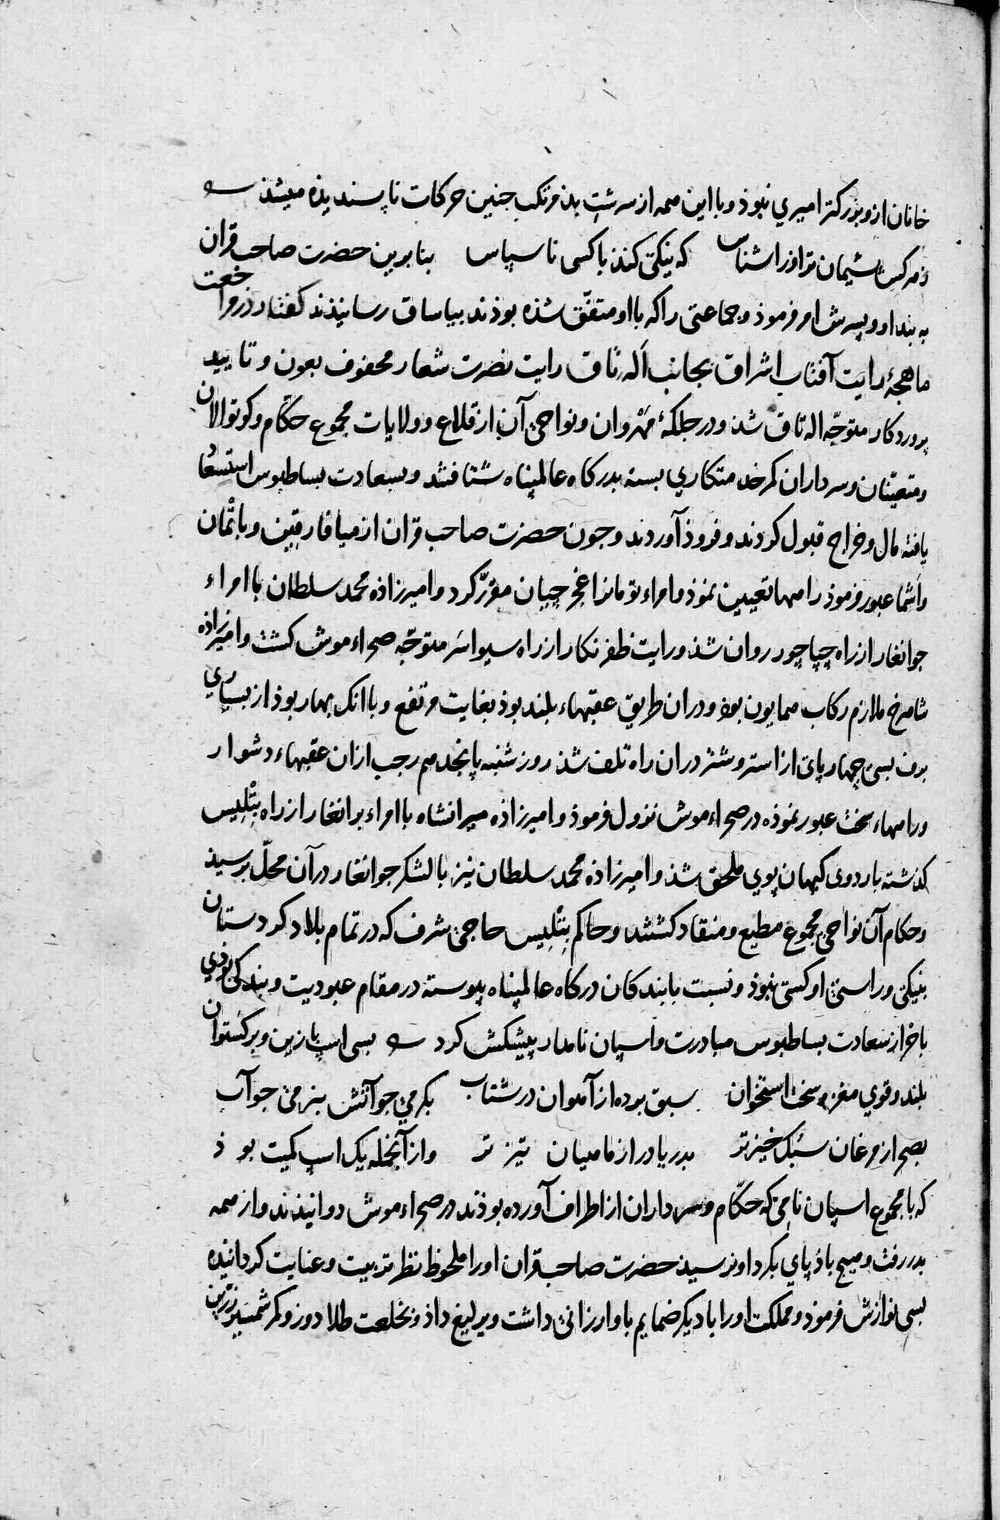 خانان ازو بزرگتر امیری نبوذ و با این همه از سرشت بد مرتکب جنین حرکات ناپسندیذه میشذ
ذ هرکس پشیمان تر او را شناس که نیکی کند با کسی ناسپاس بنا برین حضرت صاحب قران
به بند او و پسرش امر فرموذ و جماعتی را که با او متفّق شذه بوذند بیاساق رسانیذند کفتار در مراجعت
ماهچهٔ رایت آفتاب اشراق بجانب اَله تاق رایت نصرت شعار محفوف بعون و تایید
پروردکار متوجّه اله تاق شذ و در جلکهٔ مَهْروان و نواحی آن از قلاع و ولایات مجموع حکّام و کوتوالان
و متعیّنان و سرداران کمر خدمتکاری بسته بدرکاه عالمپناه شتافتند و بسعادت بساطبوس استسعاد
یافته مال و خراج قبول کردند و فروذ آوردند و جون حضرت صاحب قران از میافارقین و باتمان
و اَشما عبور فرموذ راهها تعیین نموذ و امراء تومانرا غجرجیان مقرّر کرد و امیرزاذه محمد سلطان با امراء
جوانغار از راه چپاچور روان شذ و رایت ظفر نکار از راه سیواسَر متوجّه صحراء موش کشت و امیرزاذه
شاهرخ ملازم رکاب همایون بوذ و دران طریق عقبهاء بلند بوذ بغایت مرتفع و با انک بهار بوذ از بسیاری
برف بسی چهارپای از استر و شتر دران راه تلف شذ روز شنبه پانجدهم رجب ازان عقبهاء دشوار
و راهها سخت عبور نموذه در صحراء موش نزول فرموذ و امیرزاذه میرانشاه با امراء برانغار از راه بتْلیس
کذشته باردوی کیهان پوی ملحق شذ و امیرزاذه محمد سلطان نیز با لشکر جوانغار در آن محلّ برسیذ
و حکام آن نواحی مجموع مطیع و منقاد کشتند و حاکم بتْلیس حاجی شرف که در تمام بلاد کردستان
بنیکی و راستی او کسی نبوذ و نسبت با بندکان درکاه عالمپناه پیوسته در مقام عبودیت و بندکی بوذی
باحراز سعادت بساطبوس مبادرت و اسپان نامدار پیشکش کرد بسی اسپ با زین و برکستوان
بلند و قوی مغز و سخت استخوان سبق برده از آهوان در شتاب بکرمی جو آتش بنرمی جو آب
بصحرا ز مرغان سبک خیزتر بدریا در از ماهیان تیز تر و از آنجمله یک اسپ کمیت بوذ
که با مجموع اسپان نامی که حکّام و سرداران از اطراف آورده بوذند در صحراء موش دوانیذند و از همه
بدر رفت و هیچ باذپای بکرد او نرسیذ حضرت صاحب قران او را ملحوظ نظر تربیت و عنایت کردانیذه
بسی نوازش فرموذ و مملکت او را با دیکر ضمایم باو ارزانی داشت و یرلیغ داذ و بخلعت طلادوز و کمر شمشیر زرّین